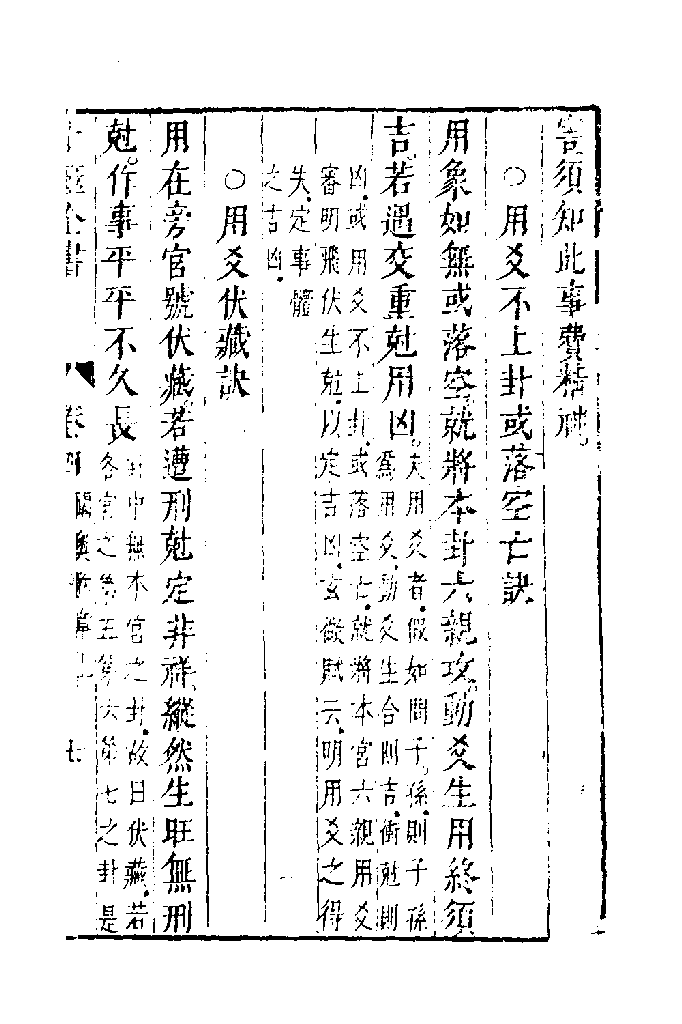 害須知此事費精神
○用爻不上卦或落空亡訣
用象如無或落空就將本卦六親攻動爻生用終須
吉若遇交重尅用凶夫用爻者假如問子孫則子孫
爲用爻動爻生合則吉衝尅則
凶或用爻不上卦或落空亡就將本宮六親用爻
審明飛伏生尅以定吉凶玄微賦云明用爻之得
失定事體
之吉凶
○用爻伏藏訣
用在旁宮號伏藏若遭刑尅定非祥縱然生旺無刑
尅作事平平不久長卦中無本宮之卦故曰伏藏若
各宮之第五第六第七之卦是
全書 卷四 七